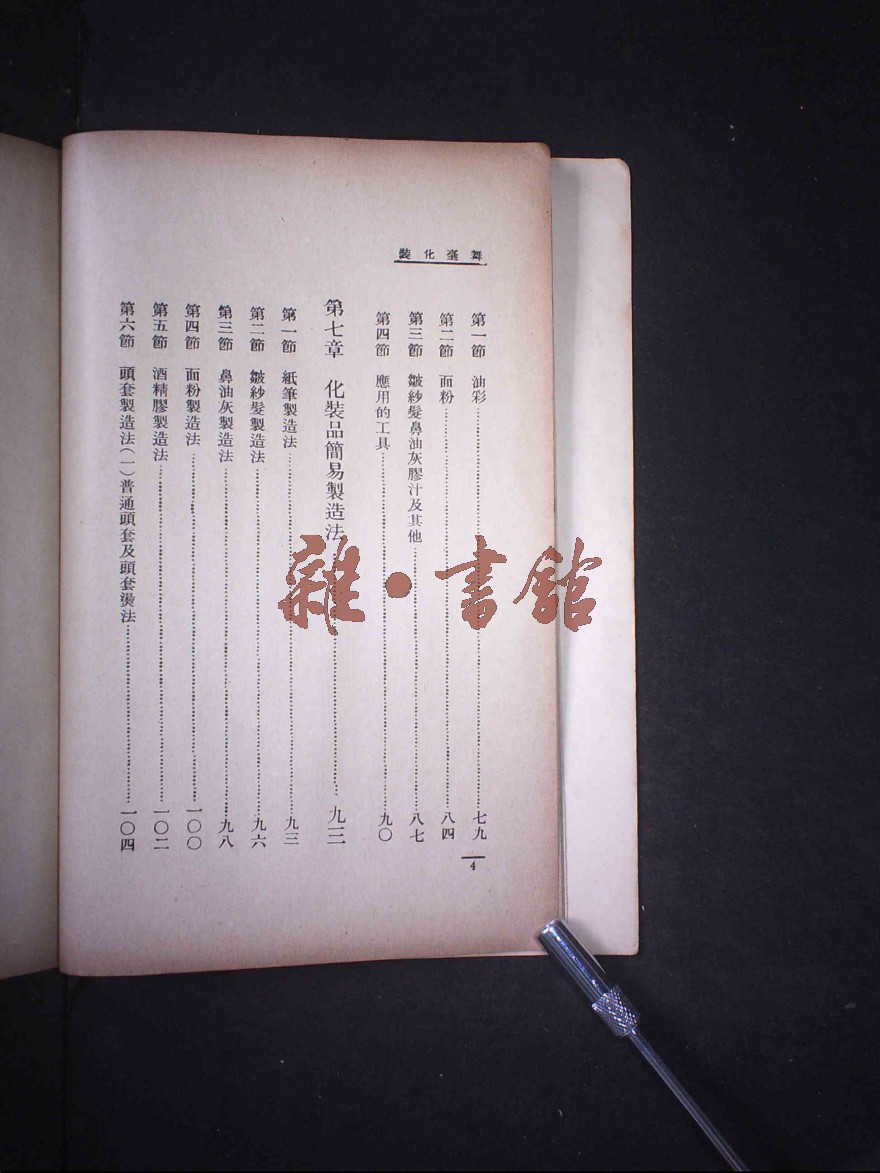 舞臺化裝
第一節　油彩……七九
第二節　面粉……八四
第三節　皺紗髮鼻油灰膠汁及其他……八七
第四節　應用的工具……九〇
第七章　化裝品簡易製造法……九三
第一節　紙筆製造法……九三
第二節　皺紗髮製造法……九六
第三節　鼻油灰製造法……九八
第四節　面粉製造法……一〇〇
第五節　酒精膠製造法……一〇二
第六節　頭套製造法(一)普通頭套及頭套燙法……一〇四
4
雜·書館